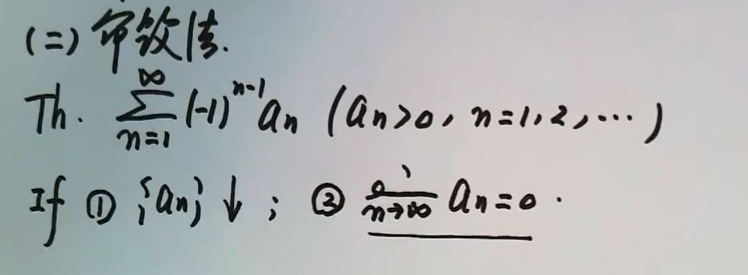 (二) 审敛法.
Th. \sum_{n=1}^{\infty} (-1)^{n-1} a_n (a_n>0, n=1,2,…)
If ① {a_n}↓; ② \lim_{n→∞} a_n=0.